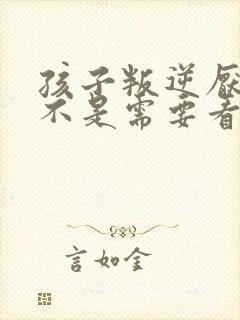 孩子叛逆厌
不是需要看
言如金